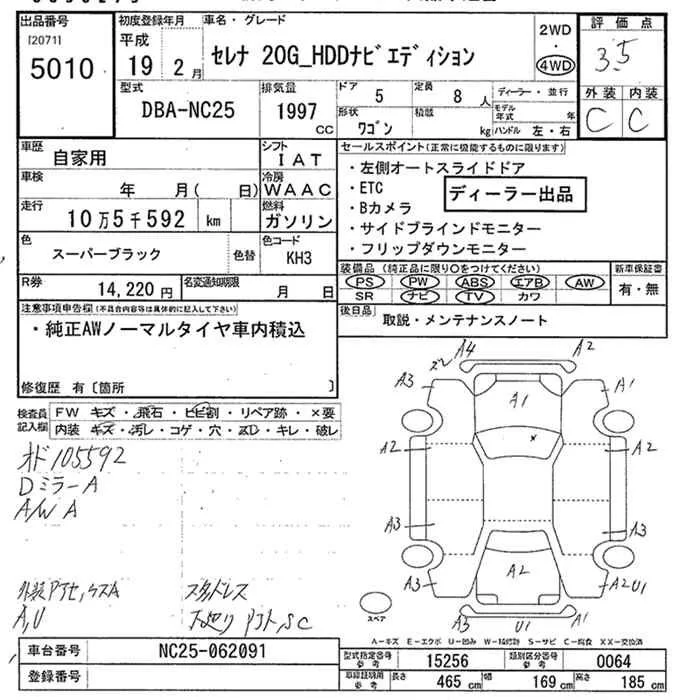 出品番号
[2071]
5010
初度登録年月
平成
19 2月
車名・グレード
セレナ 20G_HDDナビエディション
2WD
・
4WD
評価点
3.5
外装 内装
C C
型式
DBA-NC25
排気量
1997
CC
ドア
5
定員
8 人
形状
ワゴン
積載
kg
ディーラー・並行
モデル
年式 年
ハンドル 左・右
車歴
自家用
シフト
IAT
車検
年 月( 日)
冷房
WAAC
走行
10万5千592 km
燃料
ガソリン
色
スーパーブラック
色替
色コード
KH3
R券
14,220円
名変通知期限
月 日
セールスポイント(正常に機能するものに限ります)
・左側オートスライドドア
・ETC
・Bカメラ
・サイドブラインドモニター
・フリップダウンモニター
ディーラー出品
装備品 (純正品に限り○をつけてください)
PS PW ABS エアB AW
SR ナビ TV カワ
新車保証書
有・無
後日品
取説・メンテナンスノート
注意事項申告欄(不具合内容等は具体的に記入して下さい)
・純正AWノーマルタイヤ車内積込
修復歴 有〔箇所 〕
検査員
記入欄
FW キズ・飛石・ヒビ割・リペア跡・×要
内装・キズ・汚レ・コゲ・穴・スレ・キレ・破レ
オド105592
DミラーA
A/W A
スタッドレス
A,U
A4 A2
ズレ
A3 A1
A1
×
A2 A2
A3 A3
A2
A3 A2U1
A3 U1 A1
スペア
A-キズ E-エクボ U-凹み W-補修跡 S-サビ C-腐食 XX-交換済
車台番号
NC25-062091
登録番号
型式指定番号
参考
15256
類別区分番号
参考
0064
車庫証明用
参考
長さ
465 cm
幅
169 cm
高さ
185 cm